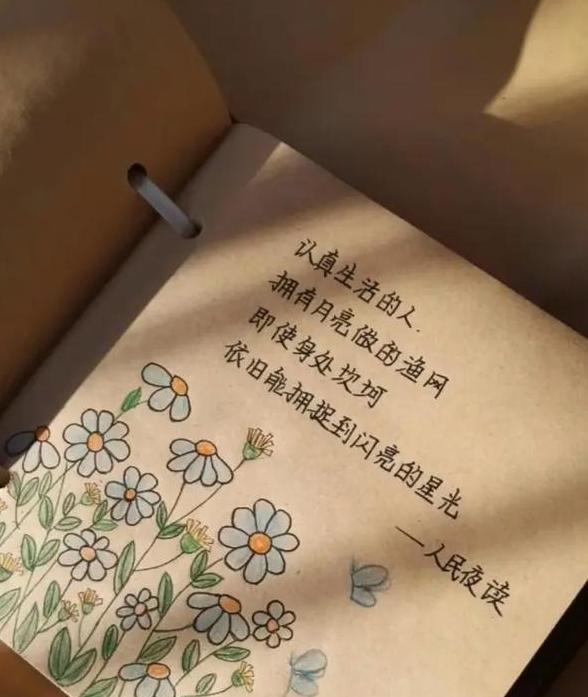 认真生活的人.
拥有月亮做的渔网
即使身处坎坷
依旧能拥捉到闪亮的星光
—人民夜读